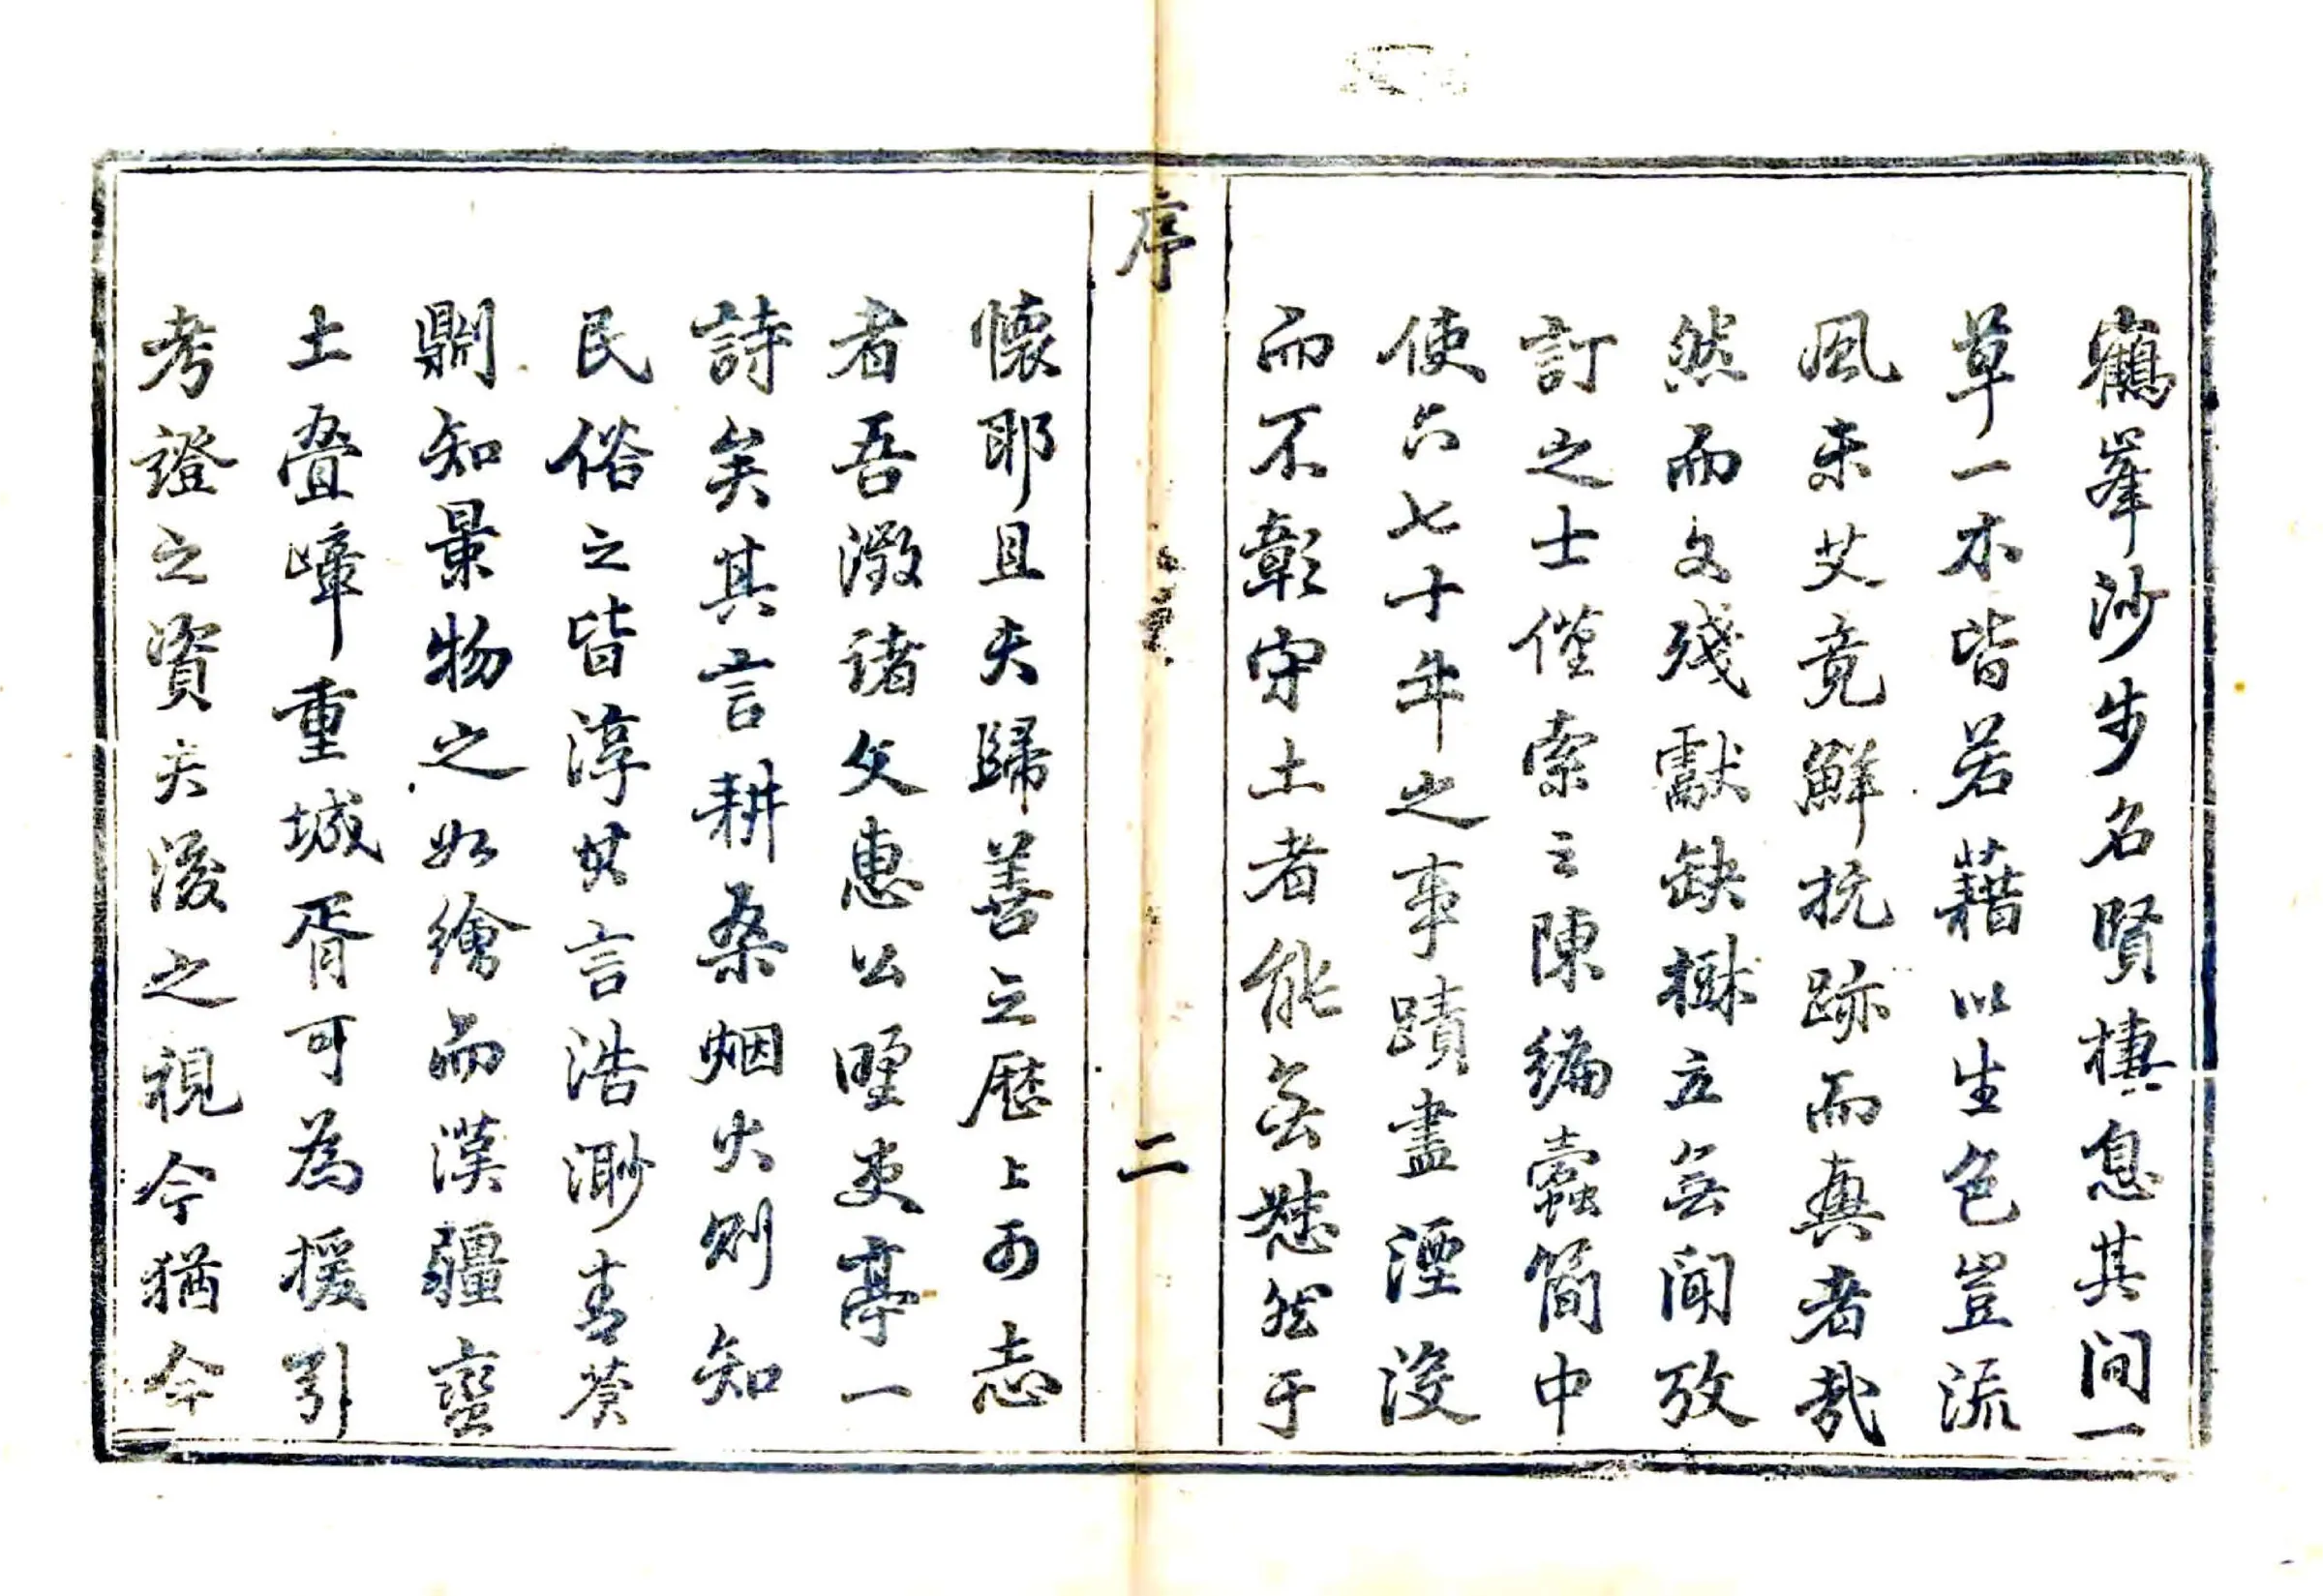 鶴峯沙步名賢棲息其间一
草一木皆若藉以生色豈流
風未艾竟鮮抗跡而興者哉
然而文殘獻缺立無聞攷
訂之士僅索之陳編蠹簡中
使六七十年之事蹟盡湮沒
而不彰守土者能無然于
序
二
懷耶且夫歸善之歷上可志
者吾澂諸文惠公野吏亭一
詩矣其言耕桑烟火則知
民俗之皆淳其言浩渺青蒼
則知景物之如繪而漢疆蠻
土叠嶂重城胥可為援引
考證之資夫後之視今猶今